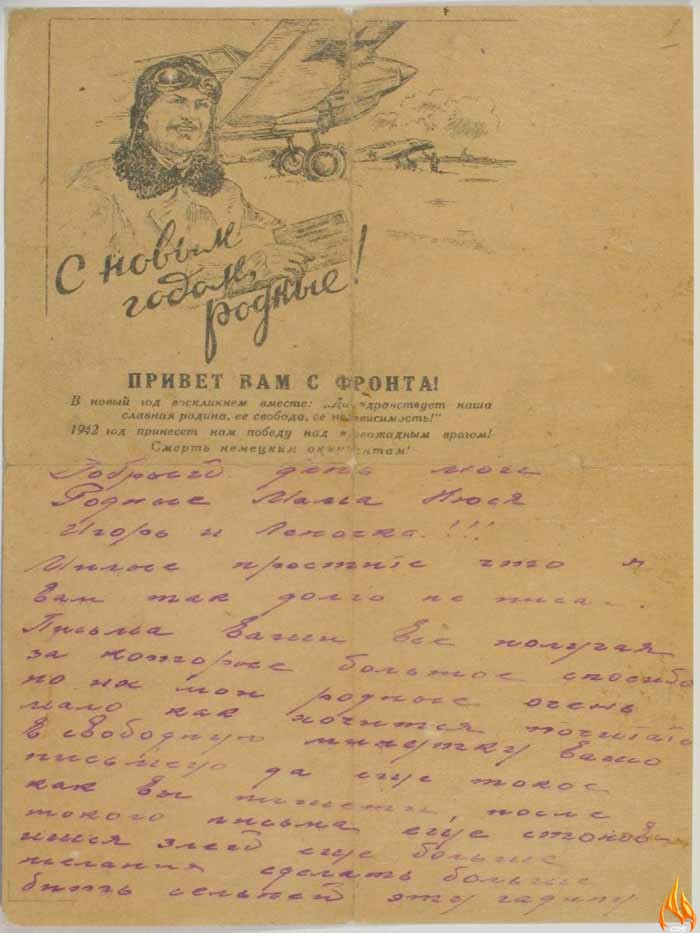 С новым
годом,
родные!
ПРИВЕТ ВАМ С ФРОНТА!
В новый год воскликнем вместе: „Да здравствует наша
славная родина, ее свобода, ее независимость!"
1942 год принесет нам победу над кровожадным врагом!
Смерть немецким оккупантам!
Добрый день мои
Родные Мама Нюся
Игорь и Леночка.!!!
Милые простите что я
вам так долго не писал.
Письма Ваши все получая
за которые большое спосибо
но их мои родные очень
мало как хочится почитать
в свободную минутку Вашо
письмцо да еще токое
как Вы пишети, после
токого письма еще стонов
ишся злей еще больше
желания сделать больше
бить сельней эту гадину